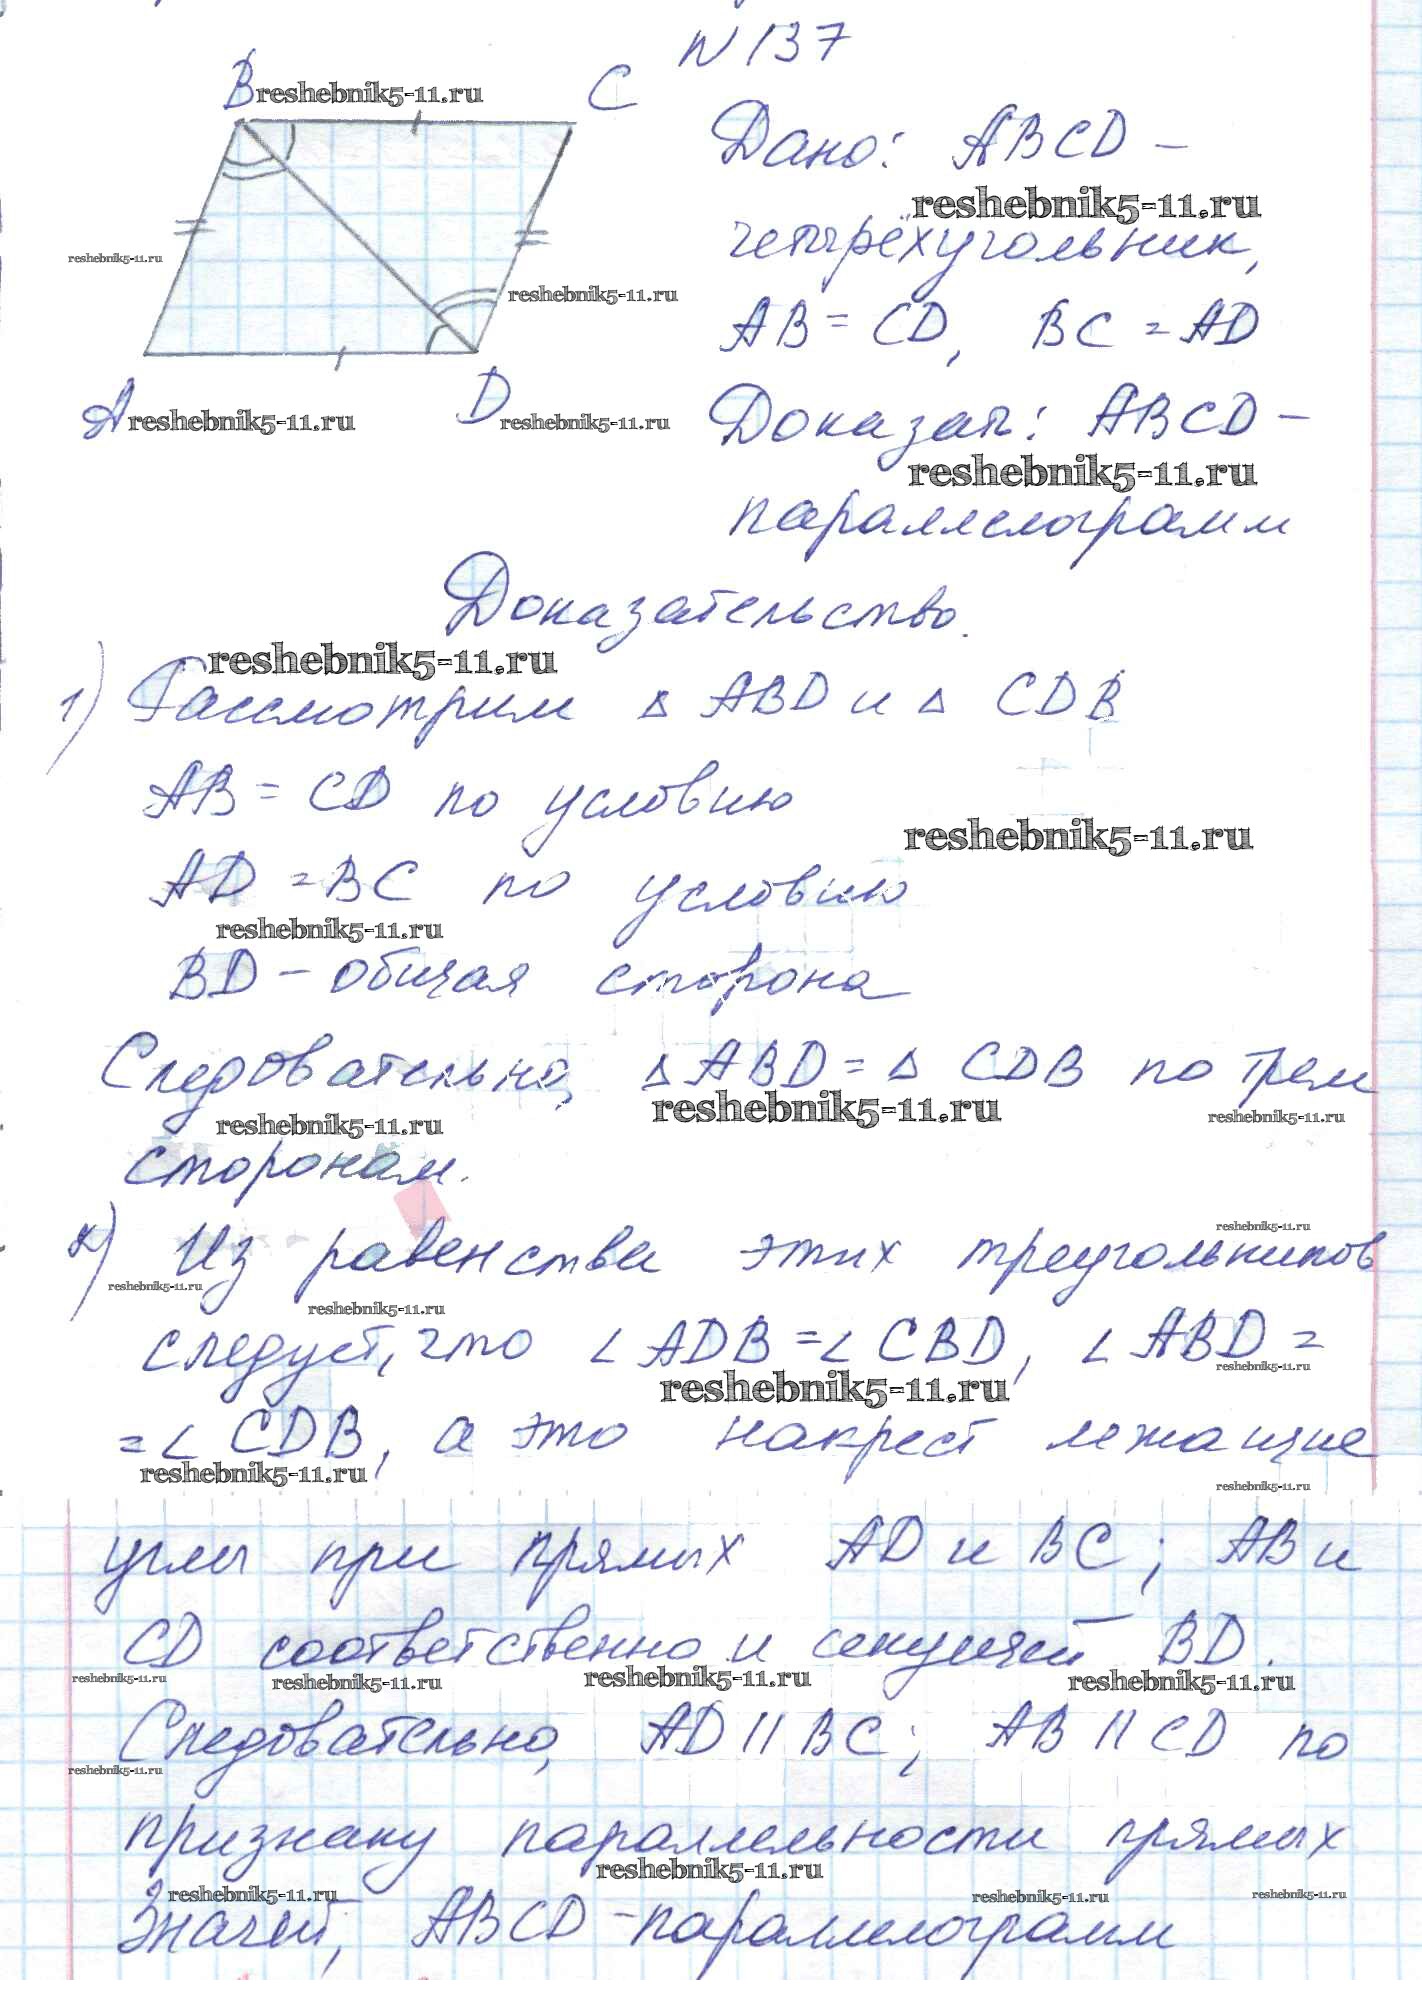 N 137
B reshebnik5-11.ru C
Дано: ABCD –
reshebnik5-11.ru
четырёхугольник,
reshebnik5-11.ru
reshebnik5-11.ru
AB = CD, BC = AD
A reshebnik5-11.ru D reshebnik5-11.ru
Доказать: ABCD –
reshebnik5-11.ru
параллелограмм
Доказательство.
reshebnik5-11.ru
1) Рассмотрим △ ABD и △ CDB
AB = CD по условию
reshebnik5-11.ru
AD = BC по условию
reshebnik5-11.ru
BD – общая сторона
Следовательно, △ ABD = △ CDB по трем
reshebnik5-11.ru reshebnik5-11.ru reshebnik5-11.ru
сторонам.
reshebnik5-11.ru
2) Из равенства этих треугольников
reshebnik5-11.ru reshebnik5-11.ru
следует, что ∠ ADB = ∠ CBD, ∠ ABD =
reshebnik5-11.ru reshebnik5-11.ru
= ∠ CDB, а это накрест лежащие
reshebnik5-11.ru reshebnik5-11.ru
углы при прямых AD и BC; AB и
CD соответственно и секущей BD.
reshebnik5-11.ru reshebnik5-11.ru reshebnik5-11.ru reshebnik5-11.ru
Следовательно, AD || BC; AB || CD по
reshebnik5-11.ru
признаку параллельности прямых
reshebnik5-11.ru
reshebnik5-11.ru reshebnik5-11.ru reshebnik5-11.ru
Значит, ABCD – параллелограмм